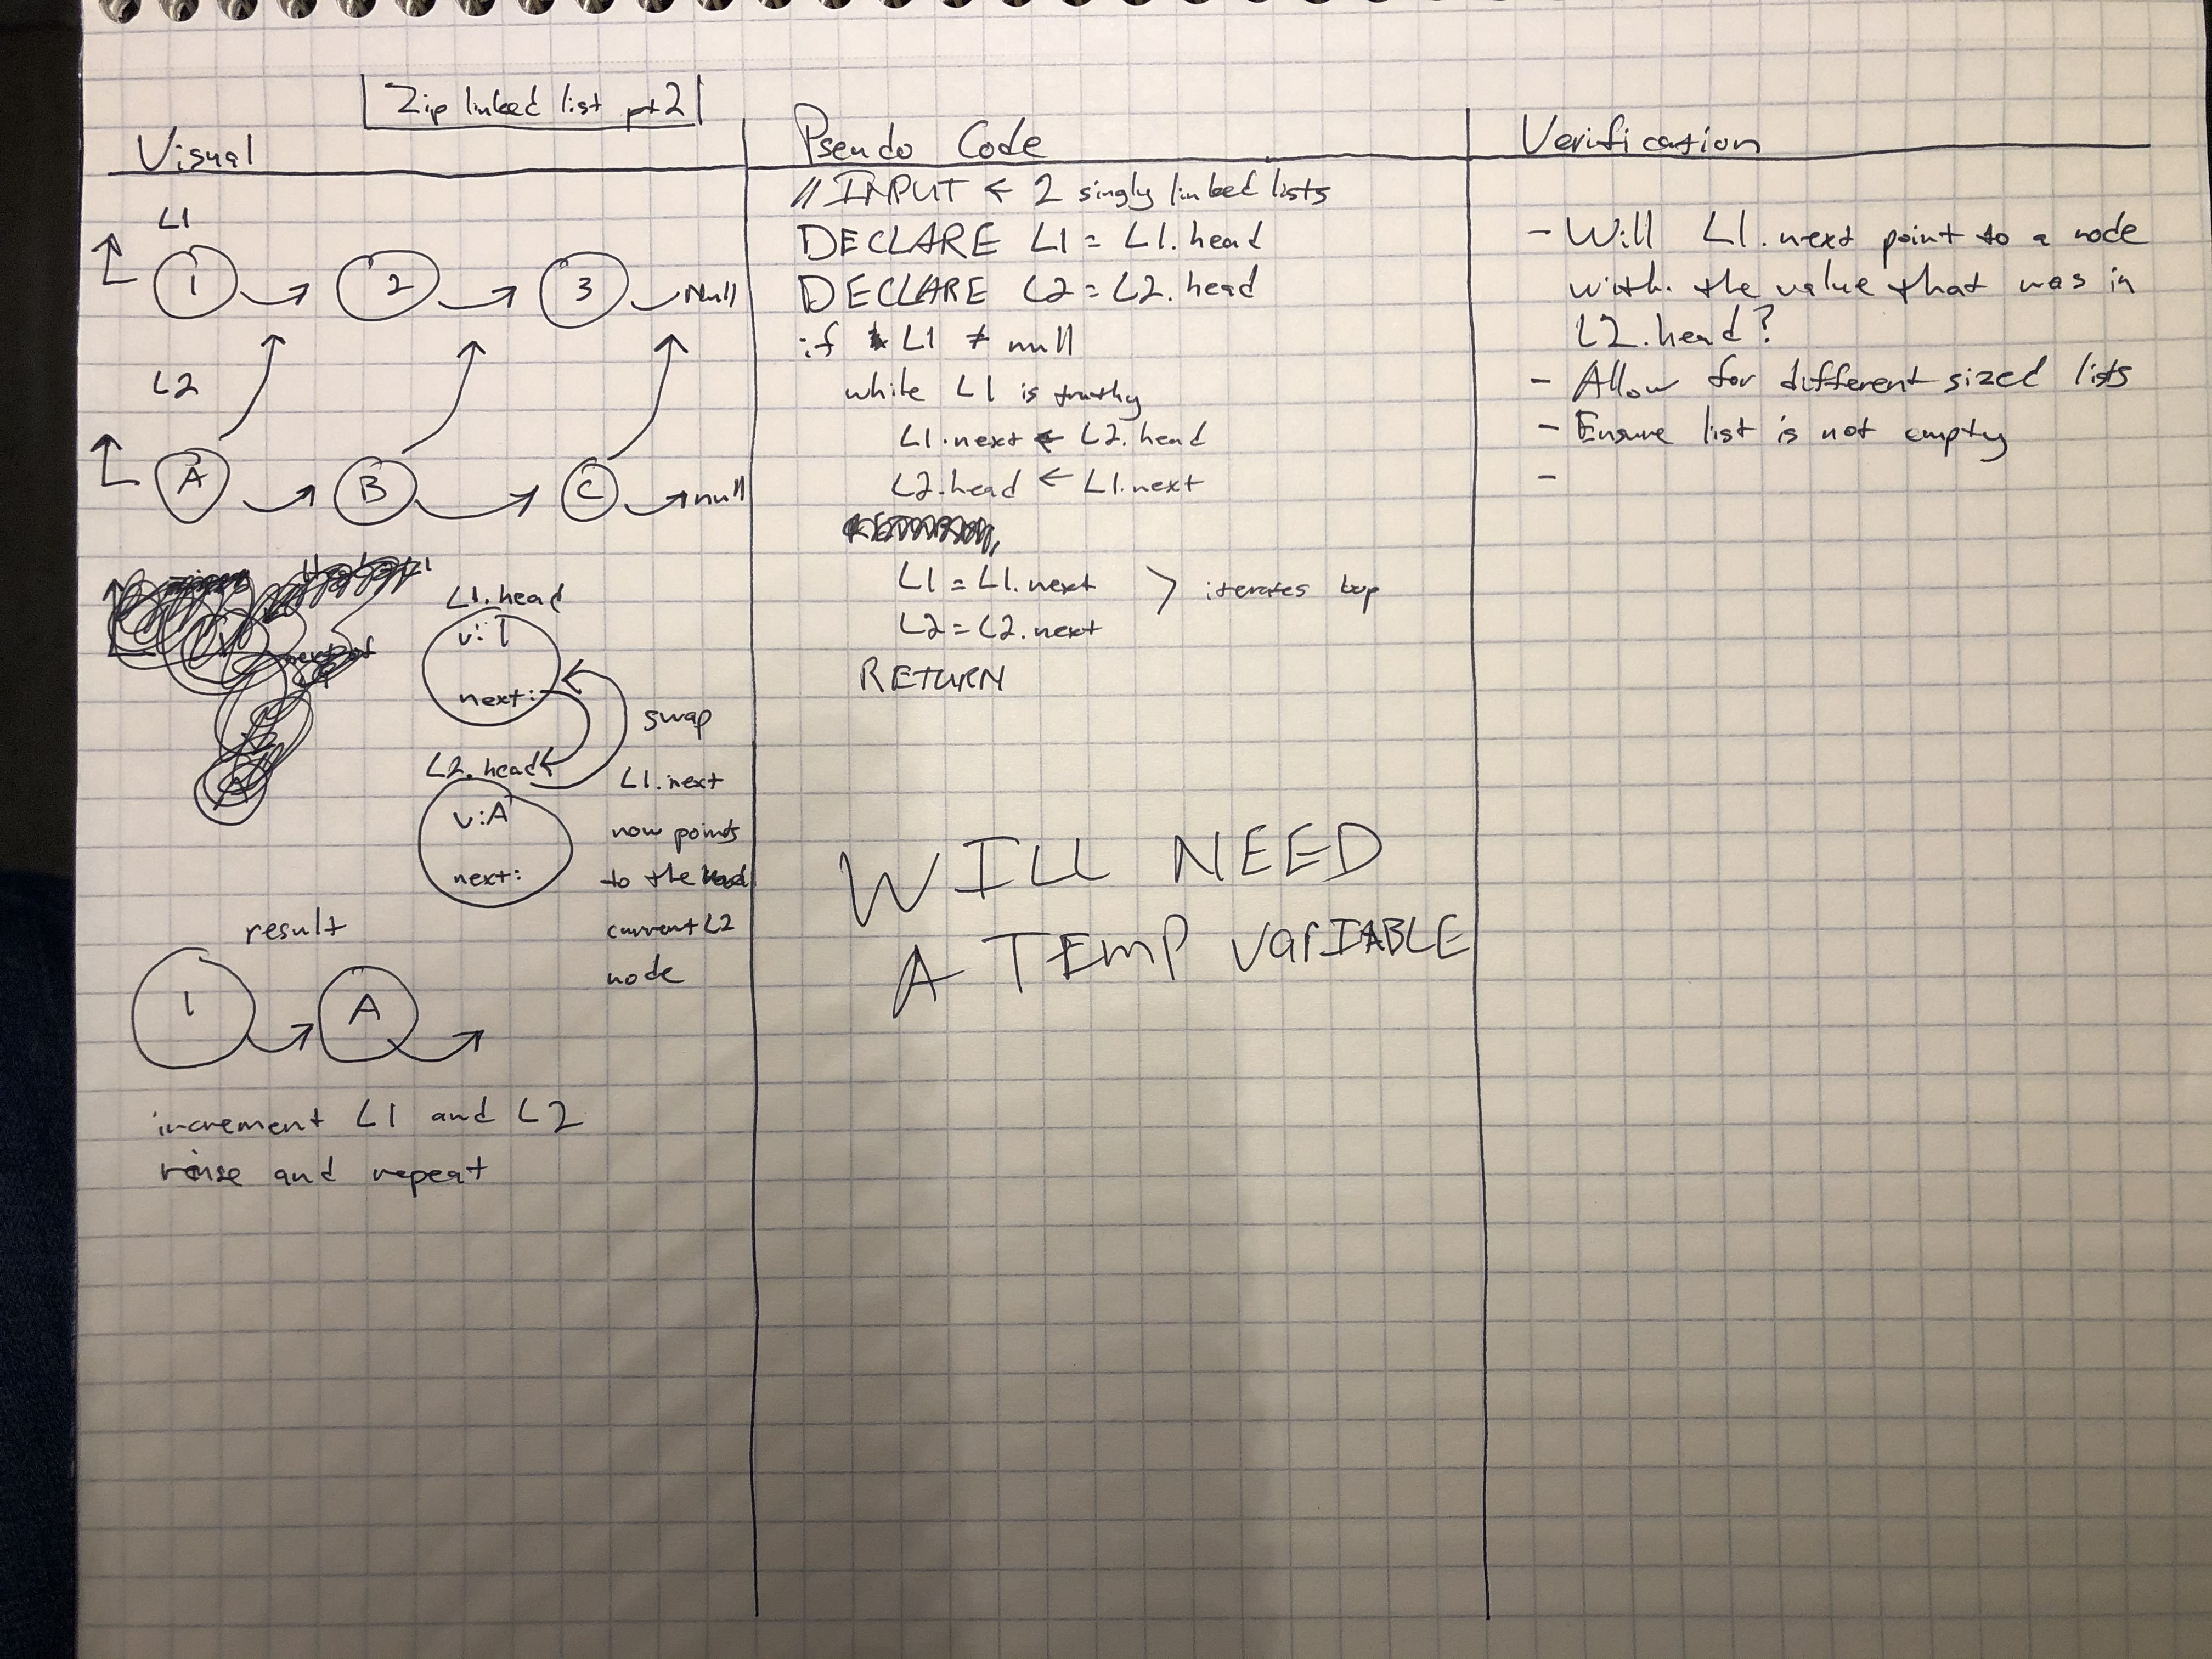 Zip linked list pt2
Visual
L1
1
2
3
Null
L2
A
B
C
null
L1.head
v: 1
next:
swap
L2.head
L1.next
v:A
now points
next:
to the
current L2
node
result
1
A
increment L1 and L2
rinse and repeat
Pseudo Code
// INPUT ← 2 singly linked lists
DECLARE L1 = L1.head
DECLARE L2 = L2.head
if L1 ≠ null
while L1 is truthy
L1.next ← L2.head
L2.head ← L1.next
L1 = L1.next > iterates loop
L2 = L2.next
RETURN
WILL NEED
A TEMP VARIABLE
Verification
- Will L1.next point to a node
with the value that was in
L2.head?
- Allow for different sized lists
- Ensure list is not empty
-